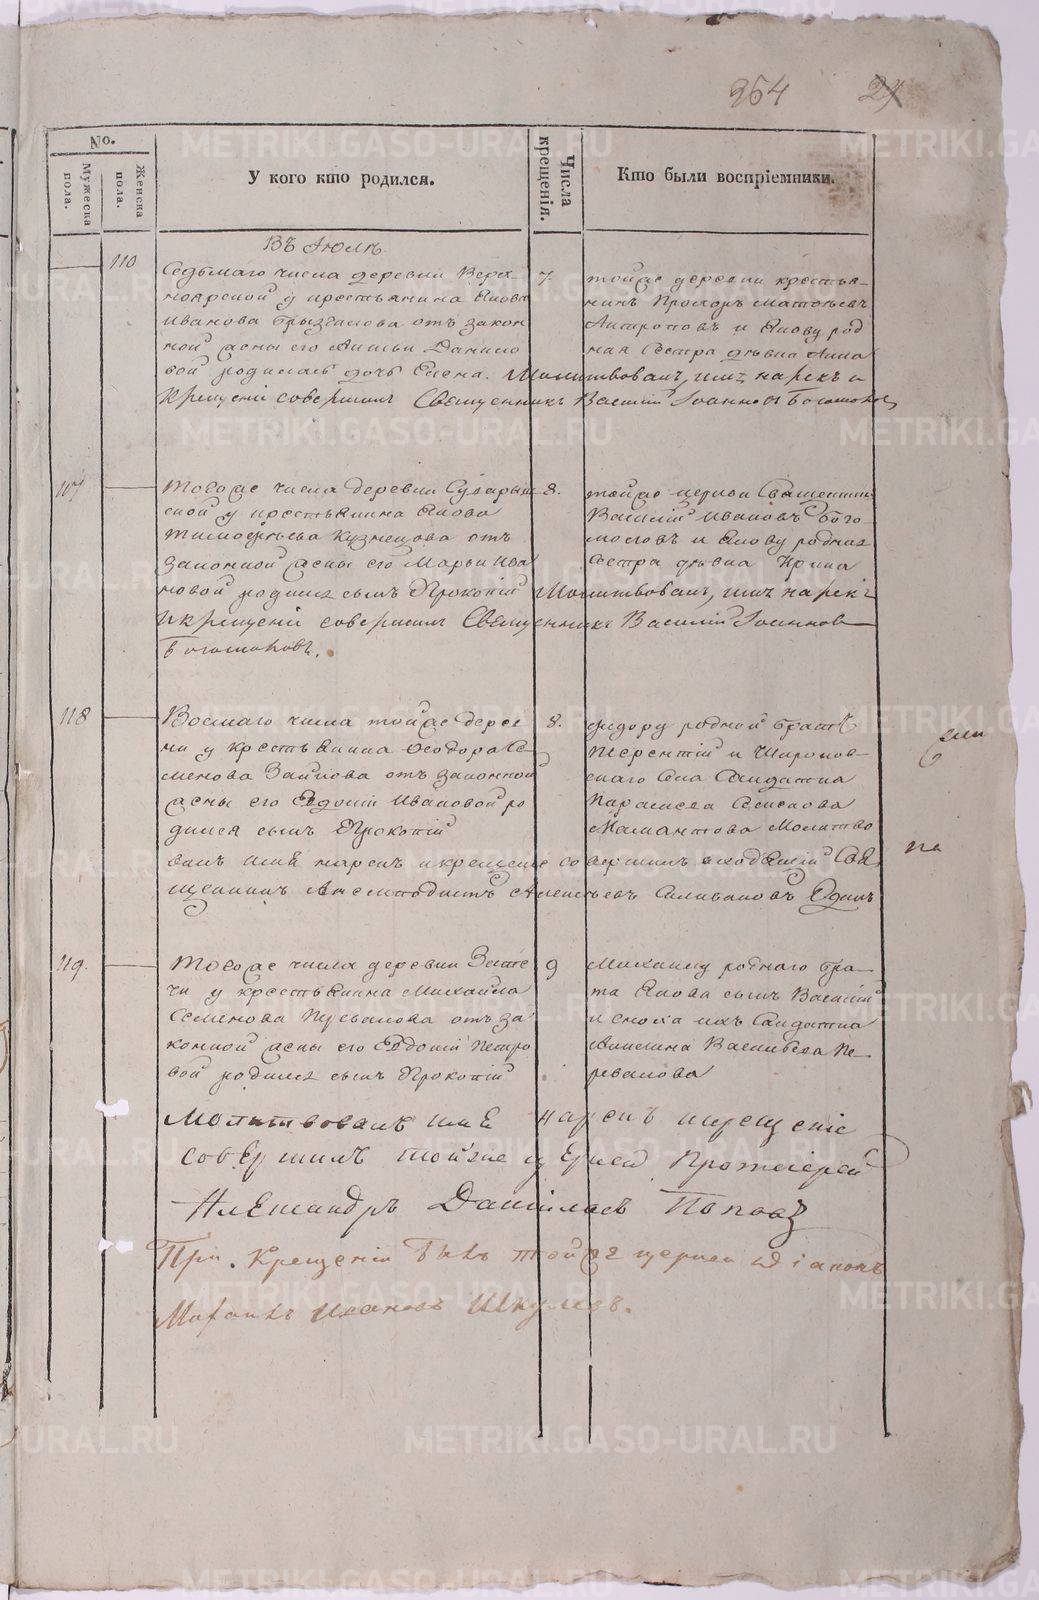 354 29
No.
Мужеска пола.
Женска пола.
У кого кто родился.
Числа крещенія.
Кто были воспріемники.
Въ Іюлѣ
110
Седьмаго числа деревни Верх-
ноярской у крестьянина Якова
Иванова Брызгалова отъ закон
ной жены его Данило
вой родилась дочь Елена. Молитвовалъ, имя нарекъ и
крещеніе совершилъ Священникъ Василій Іоанновъ
7.
тойже деревни крестья-
нинъ Прохоръ Матвѣевъ
Антроповъ и Якову род
ная сестра дѣвка Анна
117
Тогоже числа деревни
ской у крестьянина Якова
Тимофѣева Кузнецова отъ
законной жены его Марьи Ива
новой родился сынъ Прокопій Молитвовалъ, имя нарекъ
и крещеніе совершилъ Священникъ Василій Іоанновъ
8.
тойже церкви Священникъ
Василій Ивановъ Бого
и Якову родная
сестра дѣвка Ирина
118
Восмаго числа тойже дерев
ни у крестьянина Ѳеодора Се-
менова Зайкова отъ законной
жены его Евдокіи Ивановой ро
дился сынъ Прокопій
валъ имя нарекъ и крещеніе совершилъ Свя
щенникъ Алексѣевъ Селивановъ
8.
Фидору родной братъ
Терентій и
скаго села Солдатка
Параскева
Мамантова Молитво
119.
Тогоже числа деревни
чи у крестьянина Михайла
Семенова Перевалова отъ за
конной жены его Евдокіи Петро
вой родился сынъ Прокопій
9
Михаилу роднаго бра-
та Якова сынъ Василій
и сноха ихъ Солдатка
Васильева Пе-
ревалова
Молитвовалъ имя нарекъ и крещеніе
совершилъ тойже церкви Протоіерей
Александръ Даниловъ Поповъ
При Крещеніи былъ тойже церкви Діаконъ
Ивановъ Шкулевъ.
METRIKI.GASO-URAL.RU